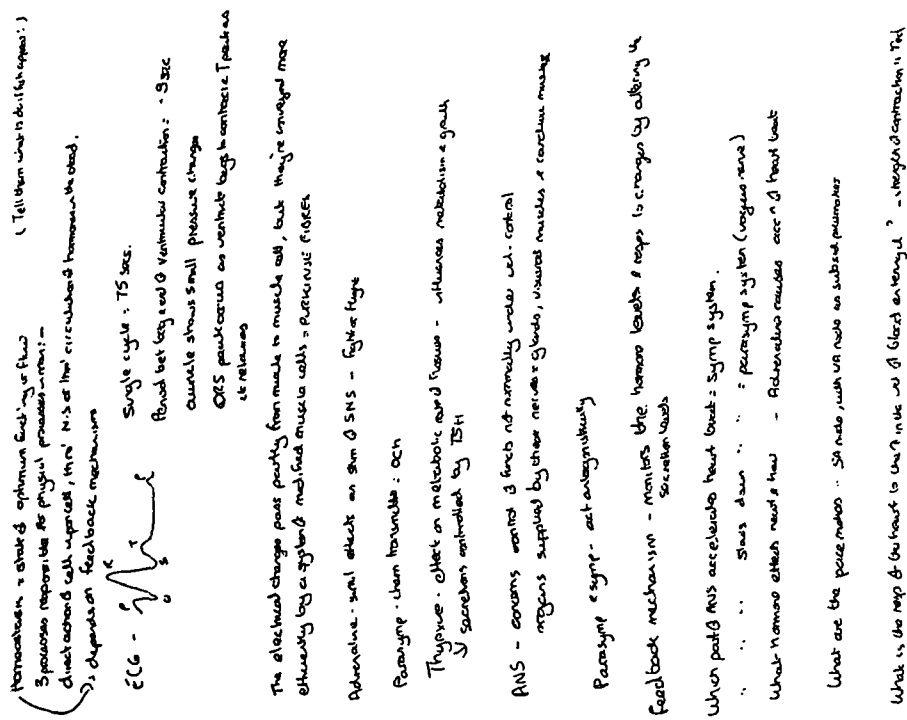 Homeostasis = state of optimum functing or flow (Tell them what is doi if it happens :)
3 processes responsible for physical processes in man :-
direct action of cell upon cell, thro' N.S or thro' circulation of hormones in the blood.
↳ depends on feedback mechanisms
ECG - P Q R S T
Single cycle : 75 secs.
Period bet beg and of Ventricular contraction : .3 sec
auricle shows small pressure changes
QRS peak occurs as ventricle begs to contract & T peak as
it relaxes
The electrical changes pass partly from muscle to muscle cell, but they're conveyed more
efficiently by a system of modified muscle cells = PURKINJE FIBRES
Adrenaline - simil effects as stim of SNS - Fight or Flight
Parasymp - chem transmitter : ACH
Thyroxine - effect on metabolic rate of tissues - influences metabolism & growth
↳ secretions controlled by TSH
ANS - concerns control of functs not normally under vol. control
organs supplied by these nerves = glands, visceral muscles & cardiac muscle
Parasymp & symp - act antagonistically
Feedback mechanism - monitors the hormone levels & resps to changes by altering the
secretion levels
Which part of ANS accelerates heart beat = Symp system.
" " " slows down " " = parasymp system (vagus nerve)
What hormone effects heart & how - Adrenaline causes accn of heart beat
What are the pacemakers - SA node, with VA node as subsid pacemaker
What is the resp of the heart to the ↑ in the vol of blood entering it? - strength of contraction is ↑ed